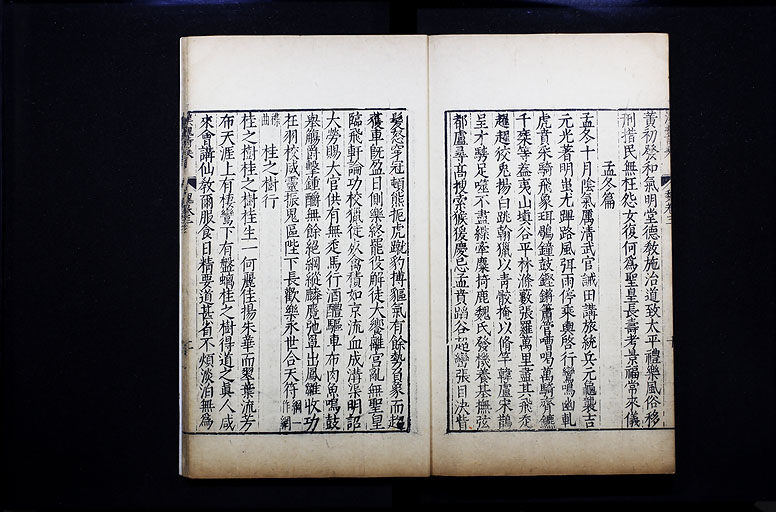 黄初發和氣明堂德教施治道致太平禮樂風俗移
刑措民無枉怨女復何爲聖皇長壽考景福常來儀
孟冬篇
孟冬十月陰氣厲清武官誡田講旅統兵元龜襲吉
元光著明蚩尤蹕路風弭雨停乘輿啓行鸞鳴幽軋
虎賁采騎飛象珥鶡鐘鼓鏗鏘簫管嘈喝萬騎齊鑣
千乘等蓋夷山填谷平林滌藪張羅萬里盡其飛走
趯趯狡兔揚白跳翰獵以青骹掩以脩竿韓盧宋鵲
呈才騁足噬不盡緤牽麋掎鹿魏氏發機養基撫弦
都盧尋髙搜索猴猨慶忌孟賁蹈谷超巒張目決眥
髮怒穿冠頓熊扼虎蹴豹搏貙氣有餘勢負象而趨
獲車既盈日側樂終罷役解徒大饗離宮亂無聖皇
臨飛軒論功校獵徒死禽積如京流血成溝渠明詔
大勞賜大官供有無走馬行酒醴驅車布肉魚鳴鼓
舉觴爵擊鍾釂無餘絕綱縱麟麑弛罩出鳳雛收功
在羽校威靈振鬼區陛下長歡樂永世合天符 綱一作網
桂之樹行
桂之樹桂之樹桂生一何麗佳揚朱華而翠葉流芳
布天涯上有棲鸞下有盤螭桂之樹得道之眞人咸
來會講仙教爾服食日精要道甚省不煩淡泊無爲